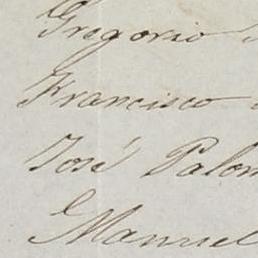 Gregorio
Francisco
José Palom
Manuel